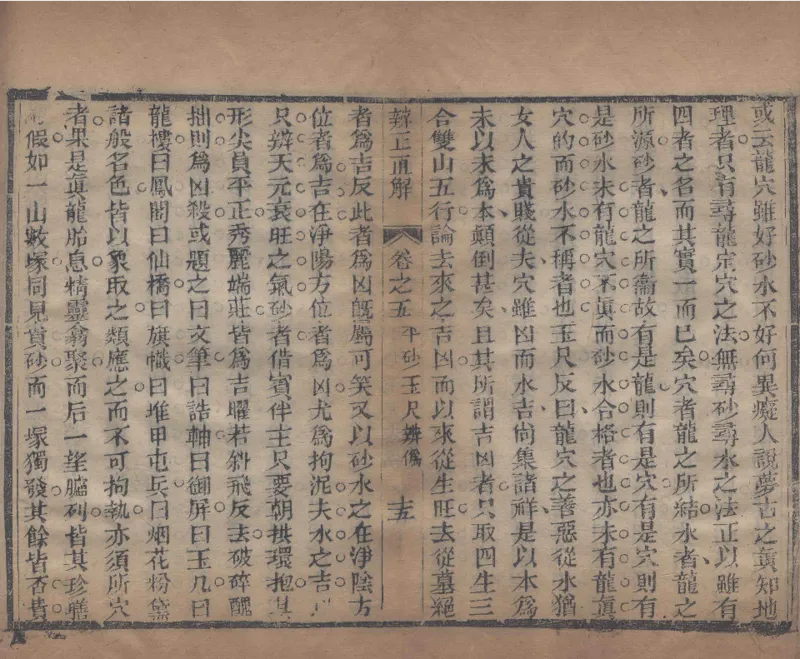 或云龍穴雖好砂水不好何異癡人說夢古之眞知地
理者只有尋龍定穴之法無尋砂尋水之法正以雖有
四者之名而其實一而已矣穴者龍之所結水者龍之
所源砂者龍之所衞故有是龍則有是穴有是穴則有
是砂水未有龍穴不眞而砂水合格者也亦未有龍眞
穴的而砂水不稱者也玉尺反曰龍穴之善惡從水猶
女人之貴賤從夫穴雖凶而水吉尙集諸祥是以本爲
末以末爲本顚倒甚矣且其所謂吉凶者只取四生三
合雙山五行論去來之吉凶而以來從生旺去從墓絕
辨正直解 卷之五 平砂玉尺辨僞 十五
者爲吉反此者爲凶旣屬可笑又以砂水之在淨陰方
位者爲吉在淨陽方位者爲凶尤爲拘泥夫水之吉凶
只辨天元衰旺之氣砂者借賓伴主只要朝拱環抱其
形尖員平正秀麗端莊皆爲吉曜若斜飛反去破碎醜
拙則爲凶殺或題之曰文筆曰誥軸曰御屛曰玉几曰
龍樓曰鳳閣曰仙橋曰旗幟曰堆甲屯兵曰烟花粉黛
諸般名色皆以象取之類應之而不可拘執亦須所穴
者果是眞龍胎息精靈翕聚而后一望臚列皆其珍膳
假如一山數塚同見貴砂而一塚獨發其餘皆否貴